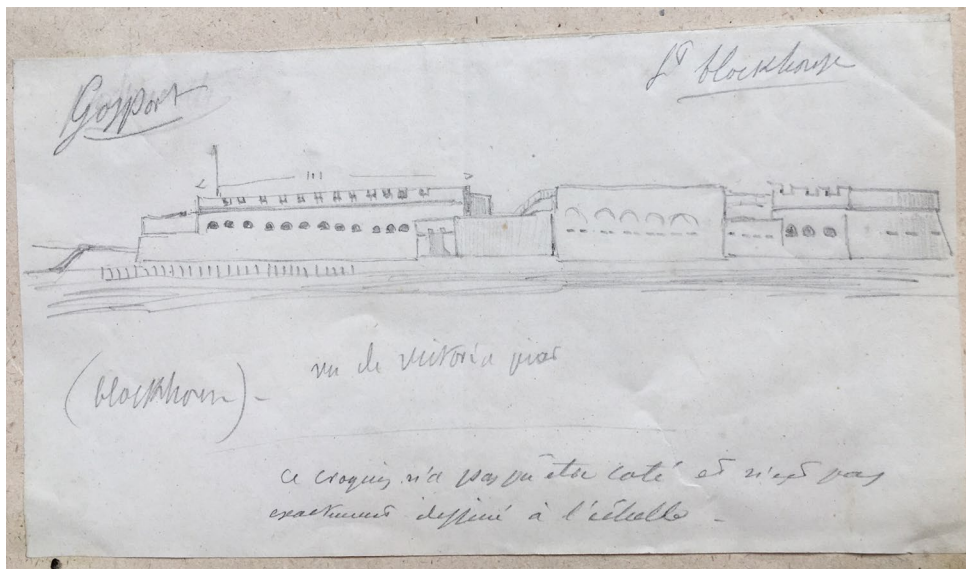 Gosport
Ft blockhouse
111
(blockhouse) -
vu de victoria pier
ce croquis n'a pas pu être coté et n'est pas
exactement dessiné à l'échelle -